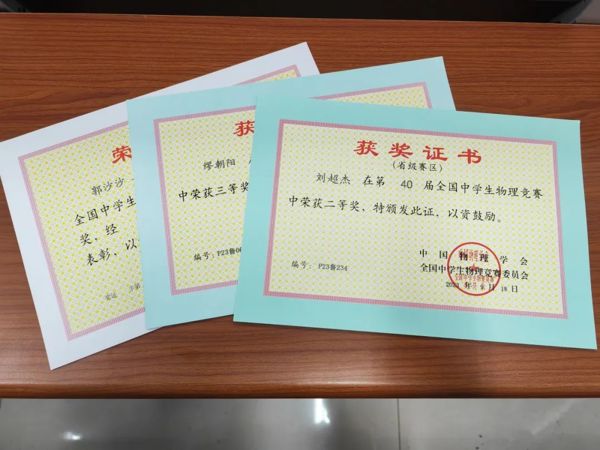 荣
郭沙沙
全国中学生
奖，经
表彰，以
获
缪朝阳
中荣获三等奖
编号：P23鲁0
获奖证书
（省级赛区）
刘超杰 在第 40 届全国中学生物理竞赛
中荣获二等奖，特颁发此证，以资鼓励。
中国物理学会
全国中学生物理竞赛委员会
编号： P23鲁234
2023 年 月 18 日